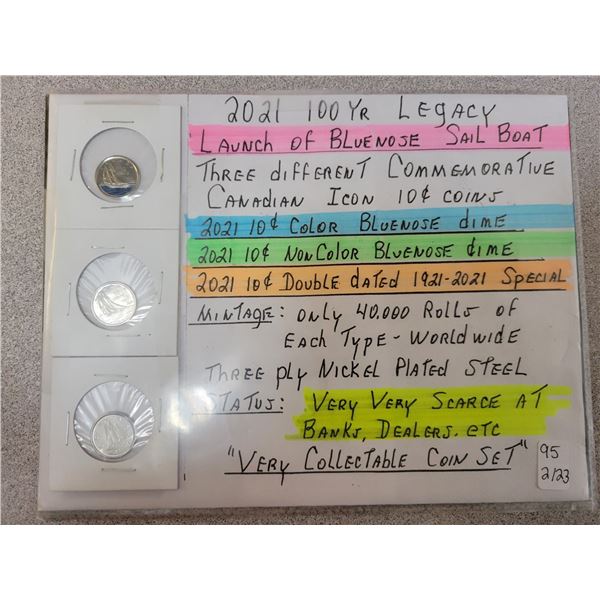 2021 100 Yr Legacy
Launch of Bluenose Sail Boat
Three different Commemorative
Canadian Icon 10¢ coins
2021 10¢ Color Bluenose dime
2021 10¢ NonColor Bluenose dime
2021 10¢ Double dated 1921-2021 Special
Mintage: only 40,000 Rolls of
Each Type - Worldwide
Three ply Nickel Plated Steel
Status: Very Very Scarce at
Banks, Dealers. etc
"Very Collectable Coin Set"
95
2/23